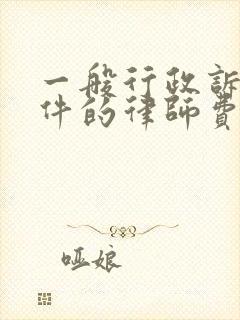 一般行政訴
件的律師費
哑娘